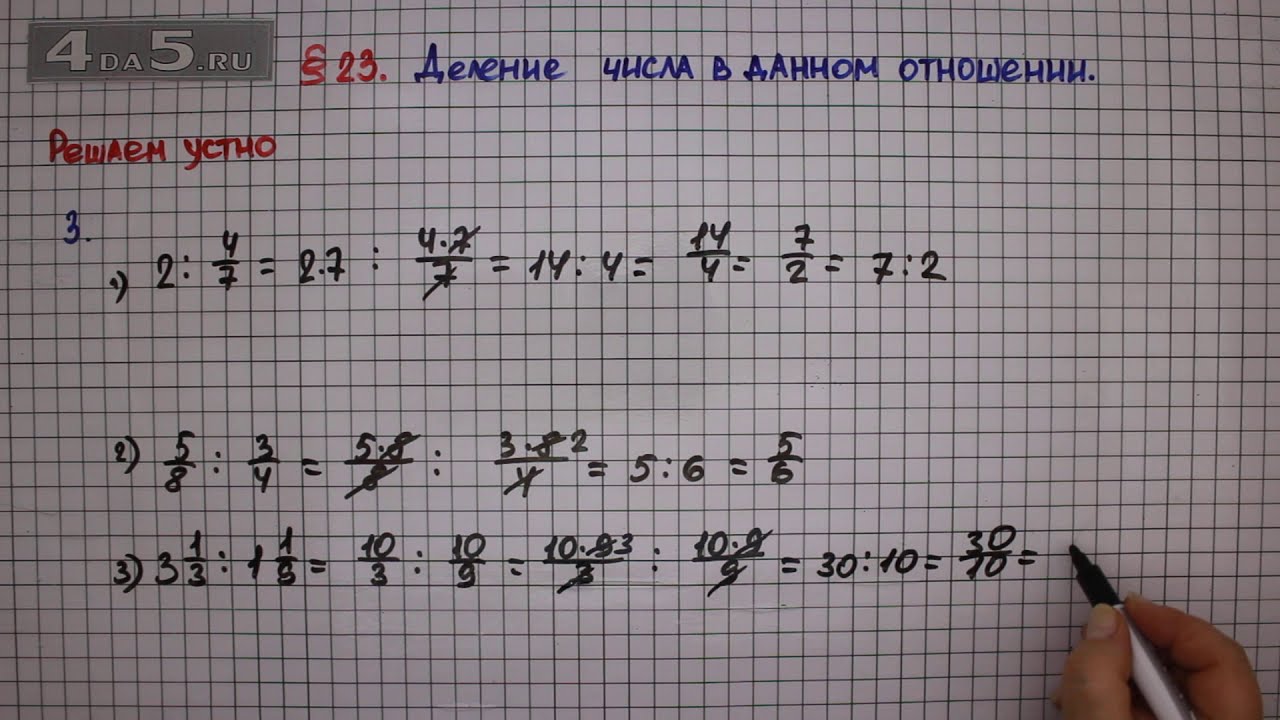 4DA5.RU
§ 23. Деление числа в данном отношении.
Решаем устно
3.
1) 2 : 4/7 = 2·7 : 4·7/7 = 14 : 4 = 14/4 = 7/2 = 7 : 2
2) 5/8 : 3/4 = 5·8/8 : 3·8 2/4 = 5 : 6 = 5/6
3) 3 1/3 : 1 1/9 = 10/3 : 10/9 = 10·9 3/3 : 10·9/9 = 30 : 10 = 30/10 =